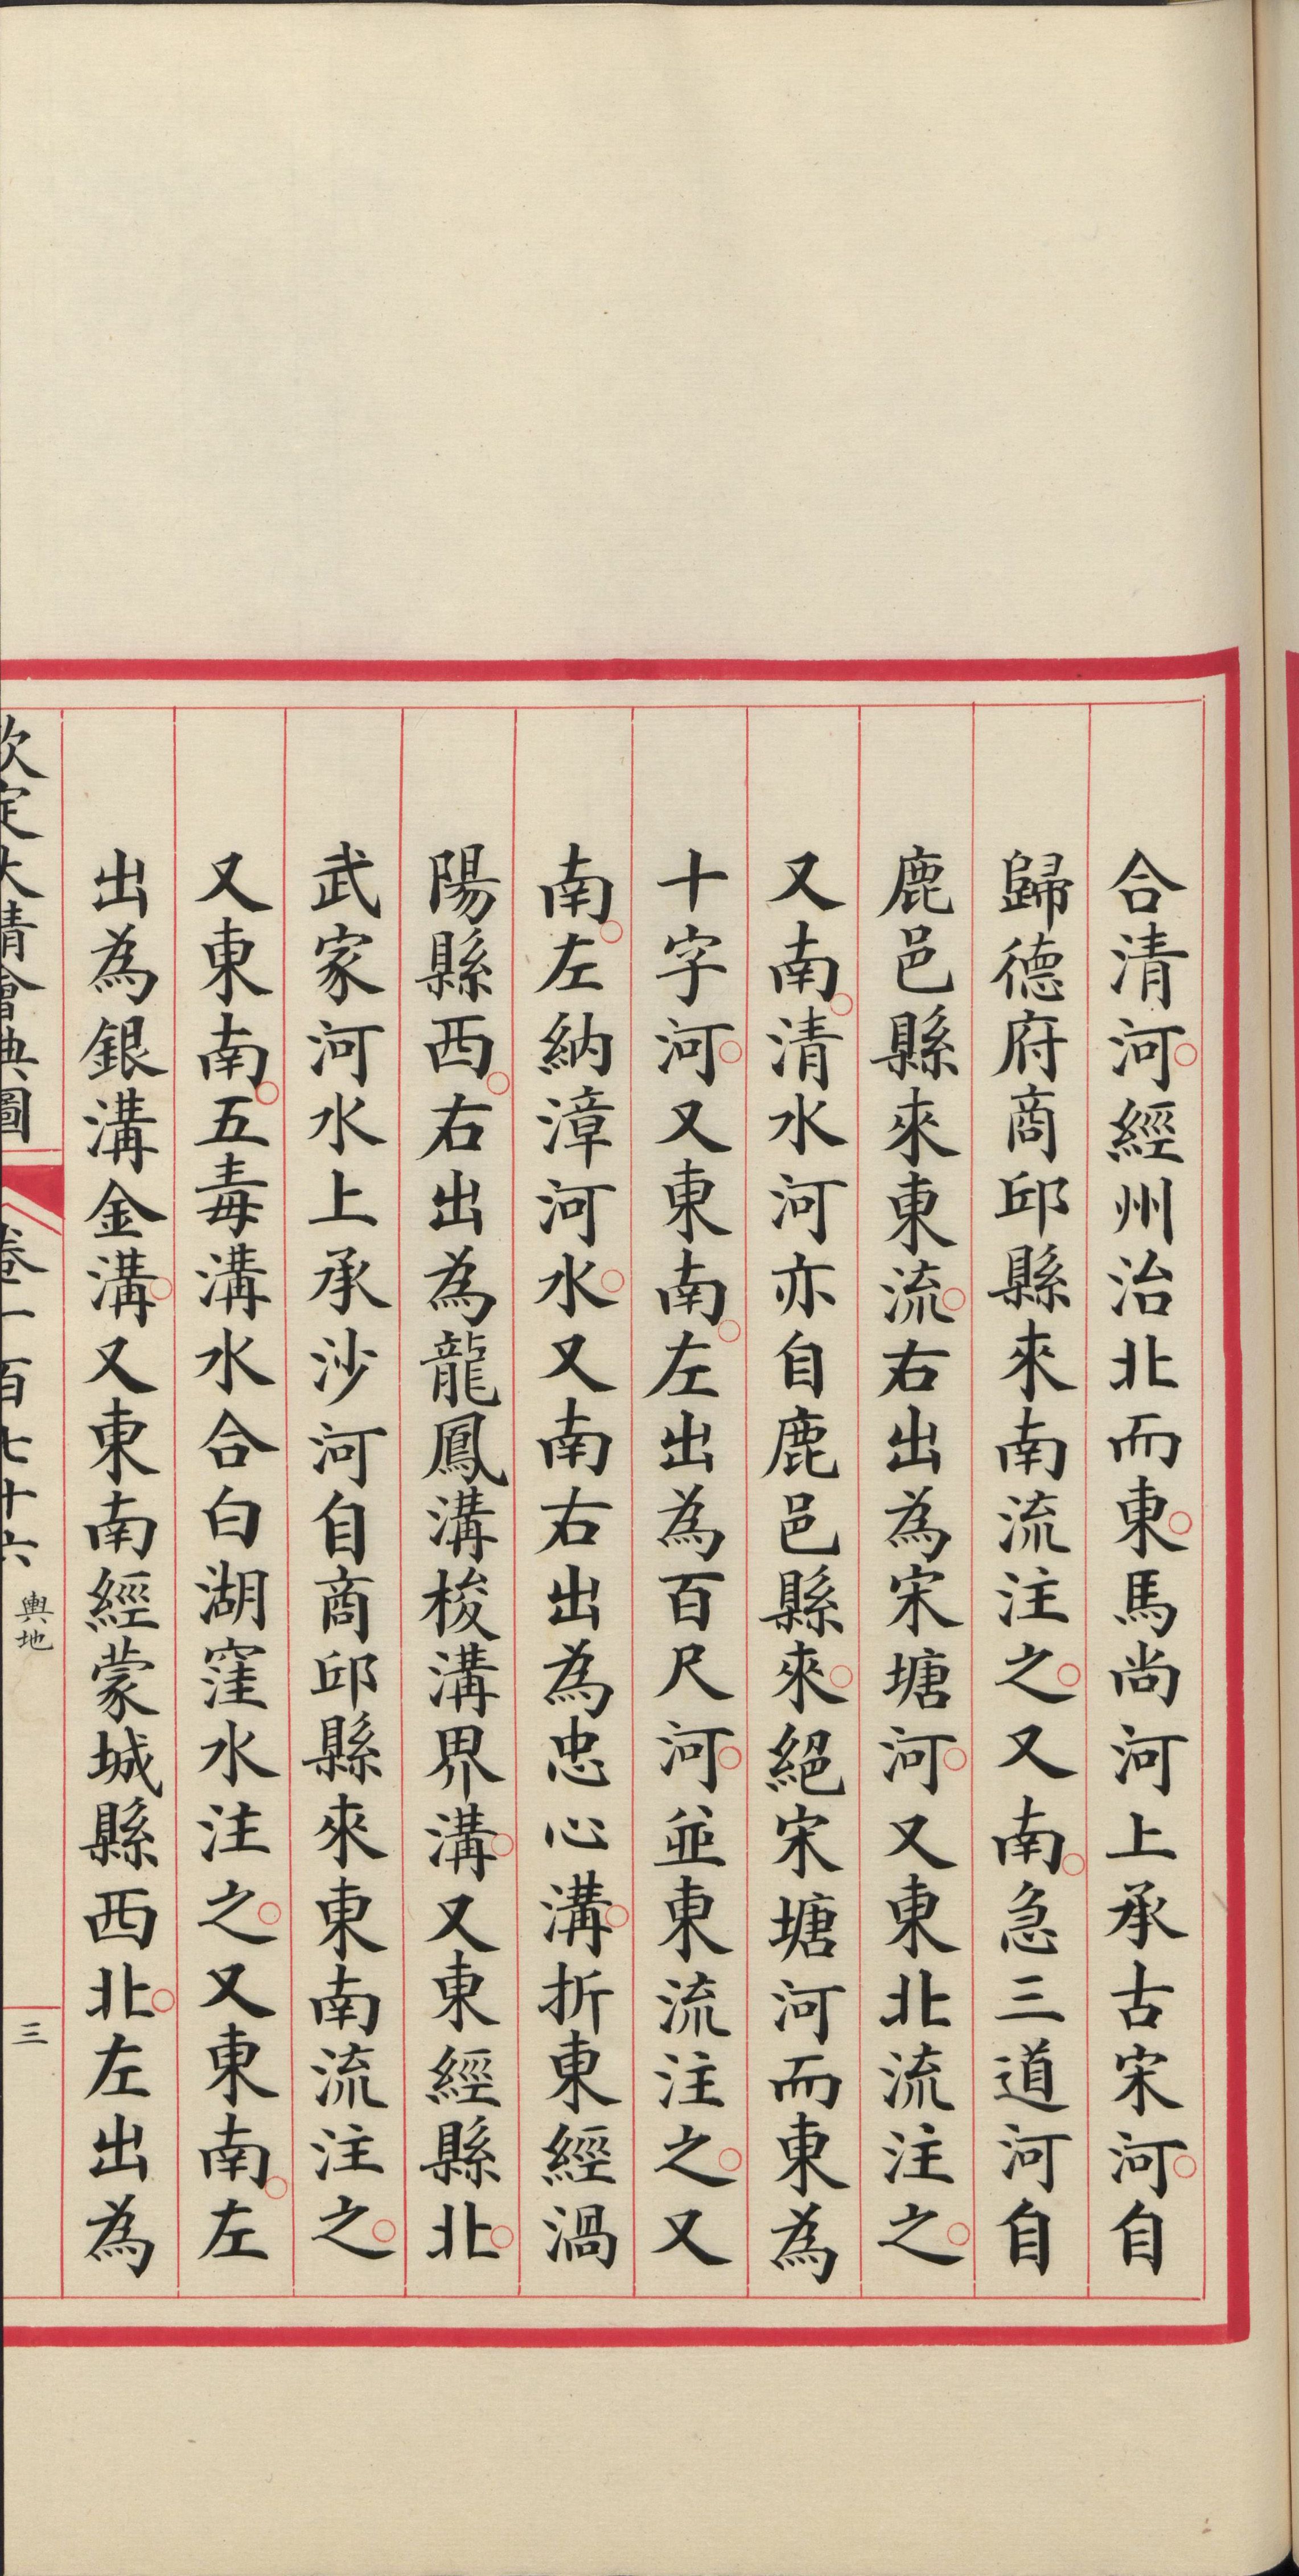 合清河。經州治北而東。馬尚河上承古宋河。自
歸德府商邱縣來南流注之。又南。急三道河自
鹿邑縣來東流。右出為宋塘河。又東北流注之。
又南。清水河亦自鹿邑縣來。絕宋塘河而東為
十字河。又東南。左出為百尺河。並東流注之。又
南。左納漳河水。又南右出為忠心溝。折東經渦
陽縣西。右出為龍鳳溝梭溝界溝。又東經縣北。
武家河水上承沙河自商邱縣來東南流注之。
又東南。五毒溝水合白湖窪水注之。又東南。左
出為銀溝金溝。又東南經蒙城縣西北。左出為
欽定大清會典圖
卷一百七十六 輿地
三